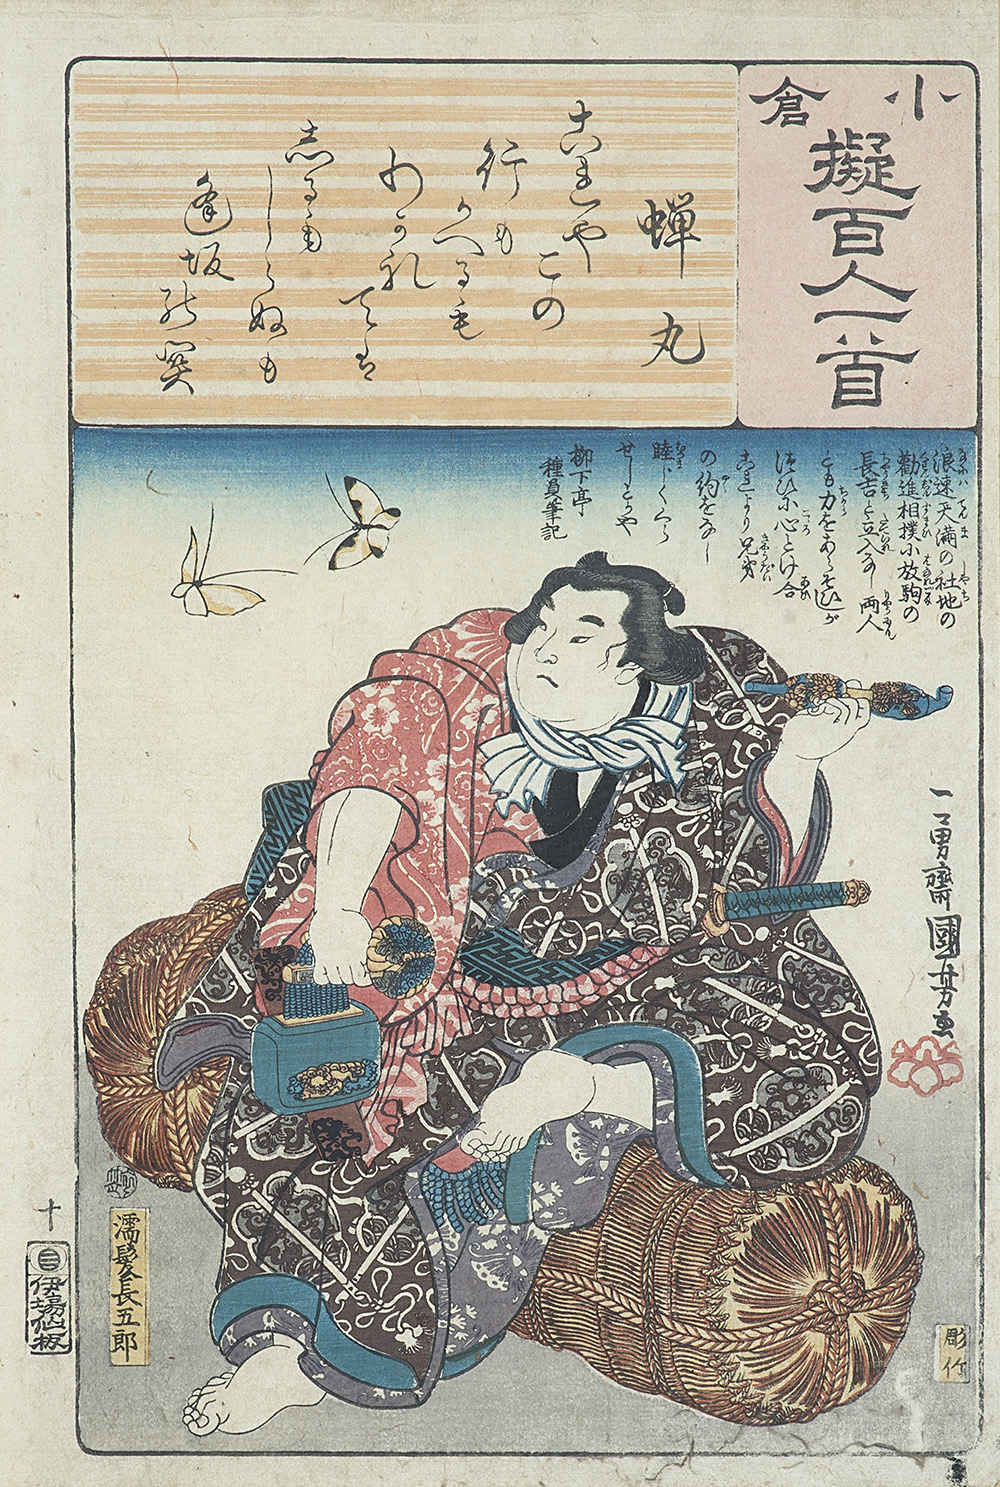 小倉
擬百人一首
蝉丸
これやこの
行も
かへる毛
わかれ
ては
志るも
しらぬも
逢坂の関
浪速天満の社地の
勧進相撲小放駒の
長吉と立入なし両人
とも力をあらそひしが
つひに心とけ合
これより兄弟
の約をなし
睦じくくら
せしとかや
柳下亭
種員筆記
一勇齋國芳画
濡髪長五郎
十
伊場仙板
彫竹